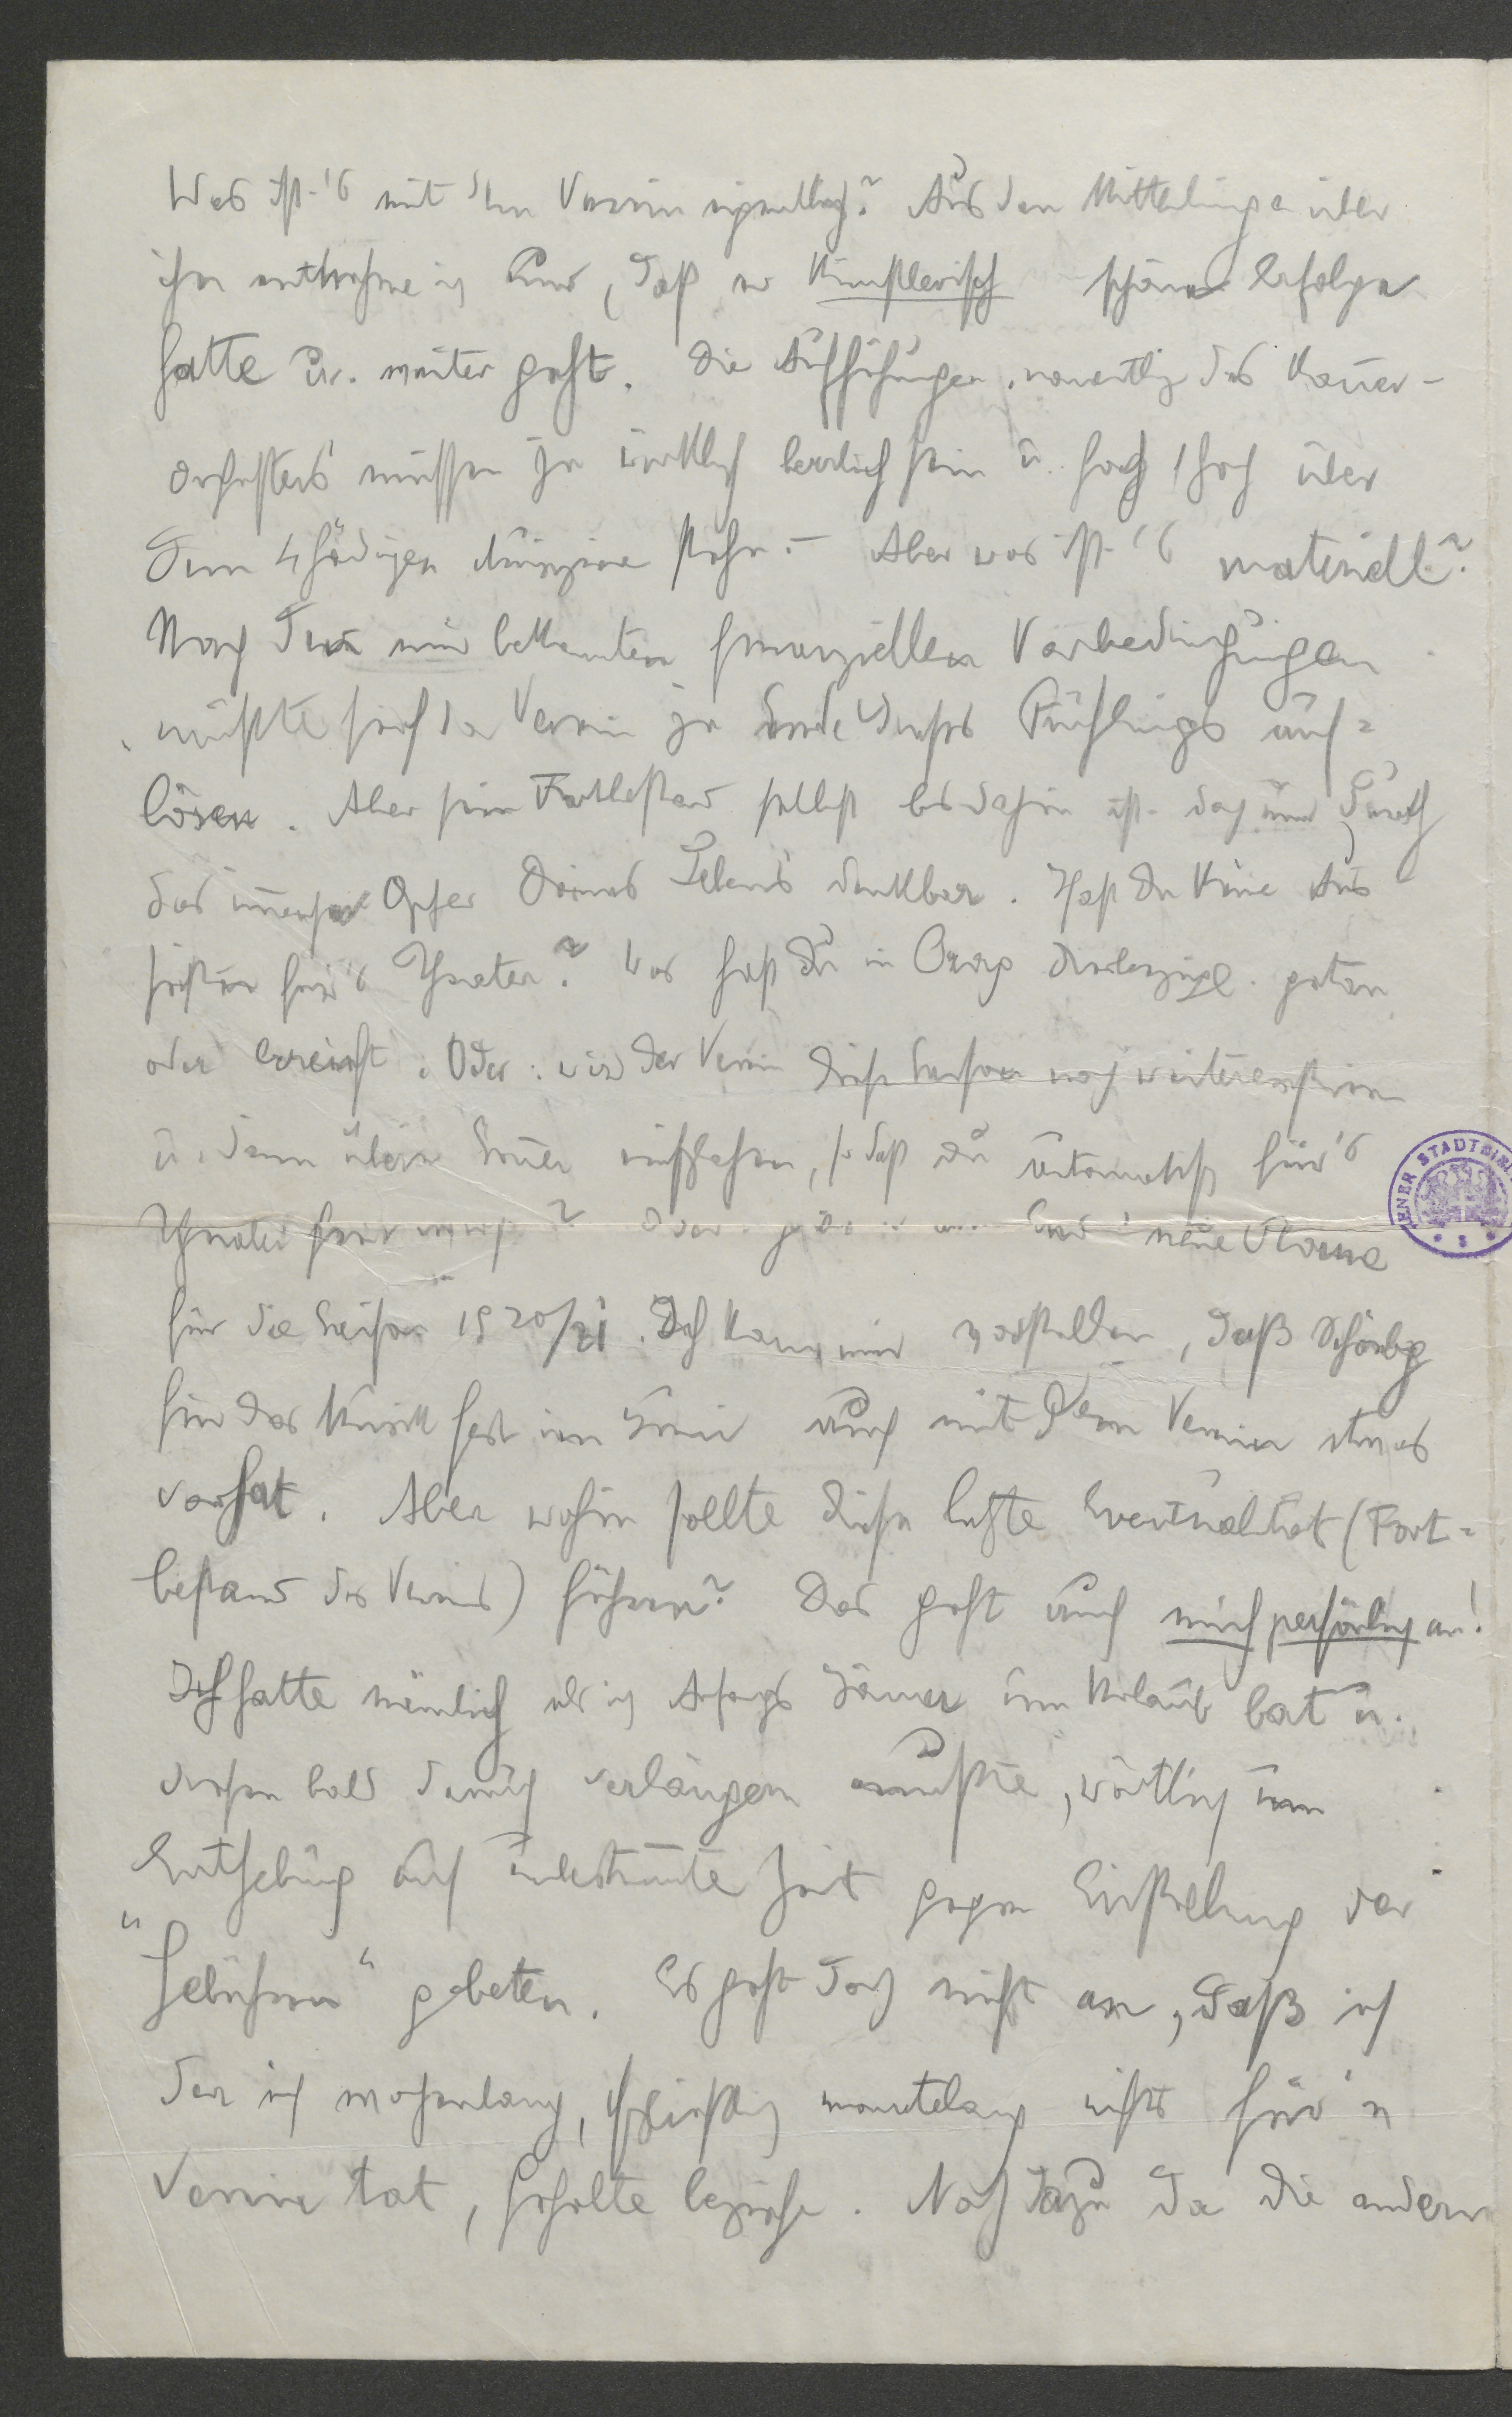 Was ist's mit dem Verein eigentlich? Aus den Mitteilungen über
ihn entnehme ich nur, daß er künstlerisch schöne Erfolge
hatte u. weiter geht. Die Aufführungen, namentlich des Kammer-
orchesters müssen ja wirklich herrlich sein u. hoch, hoch über
dem 4händigen stehn. – Aber was ist's materiell?
Nach den mir bekannten finanziellen Vorbedingungen
müßte sich der Verein ja Ende dieses Frühlings auf-
lösen. Aber sein Fortbestand selbst bis dahin ist doch nur durch
das immense Opfer Deines Lebens denkbar. Hast Du keine Aus
sichten für's Theater? Was hast Du in Prag diesbezügl. getan
oder erreicht. Oder: wird der Verein diese Saison noch weiterexistieren
u. dann übern Sommer einschlafen, so daß Du automatisch für's
Theater frei wirst? Oder neue Pläne
für die Saison 1920/21. Ich kann mir vorstellen, daß Schönbg
für das Musikfest im Juni auch mit dem Verein etwas
vorhat. Aber wohin sollte diese letzte Eventualität (Fort-
bestand des Vereins) führen? Das geht auch mich persönlich an!
Ich hatte nämlich als ich Anfangs Jänner um Urlaub bat u.
diesen bald darauf verlängern mußte, wörtlich um
Enthebung auf unbestimmte Zeit gegen Einstellung der
"Gebühren" gebeten. Es geht doch nicht an, daß ich
der ich wochenlang, schließlich monatelang nichts für'n
Verein tat, Gehalte beziehe. Noch dazu da die andern
WIENER STADTBI